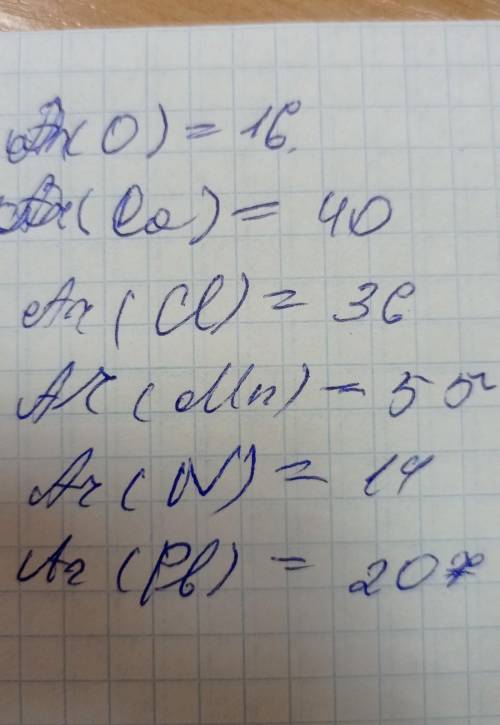 Ar(O) = 16.
Ar(Ca) = 40
Ar(Cl) = 36
Ar(Mn) = 55
Ar(N) = 14
Ar(Pb) = 207